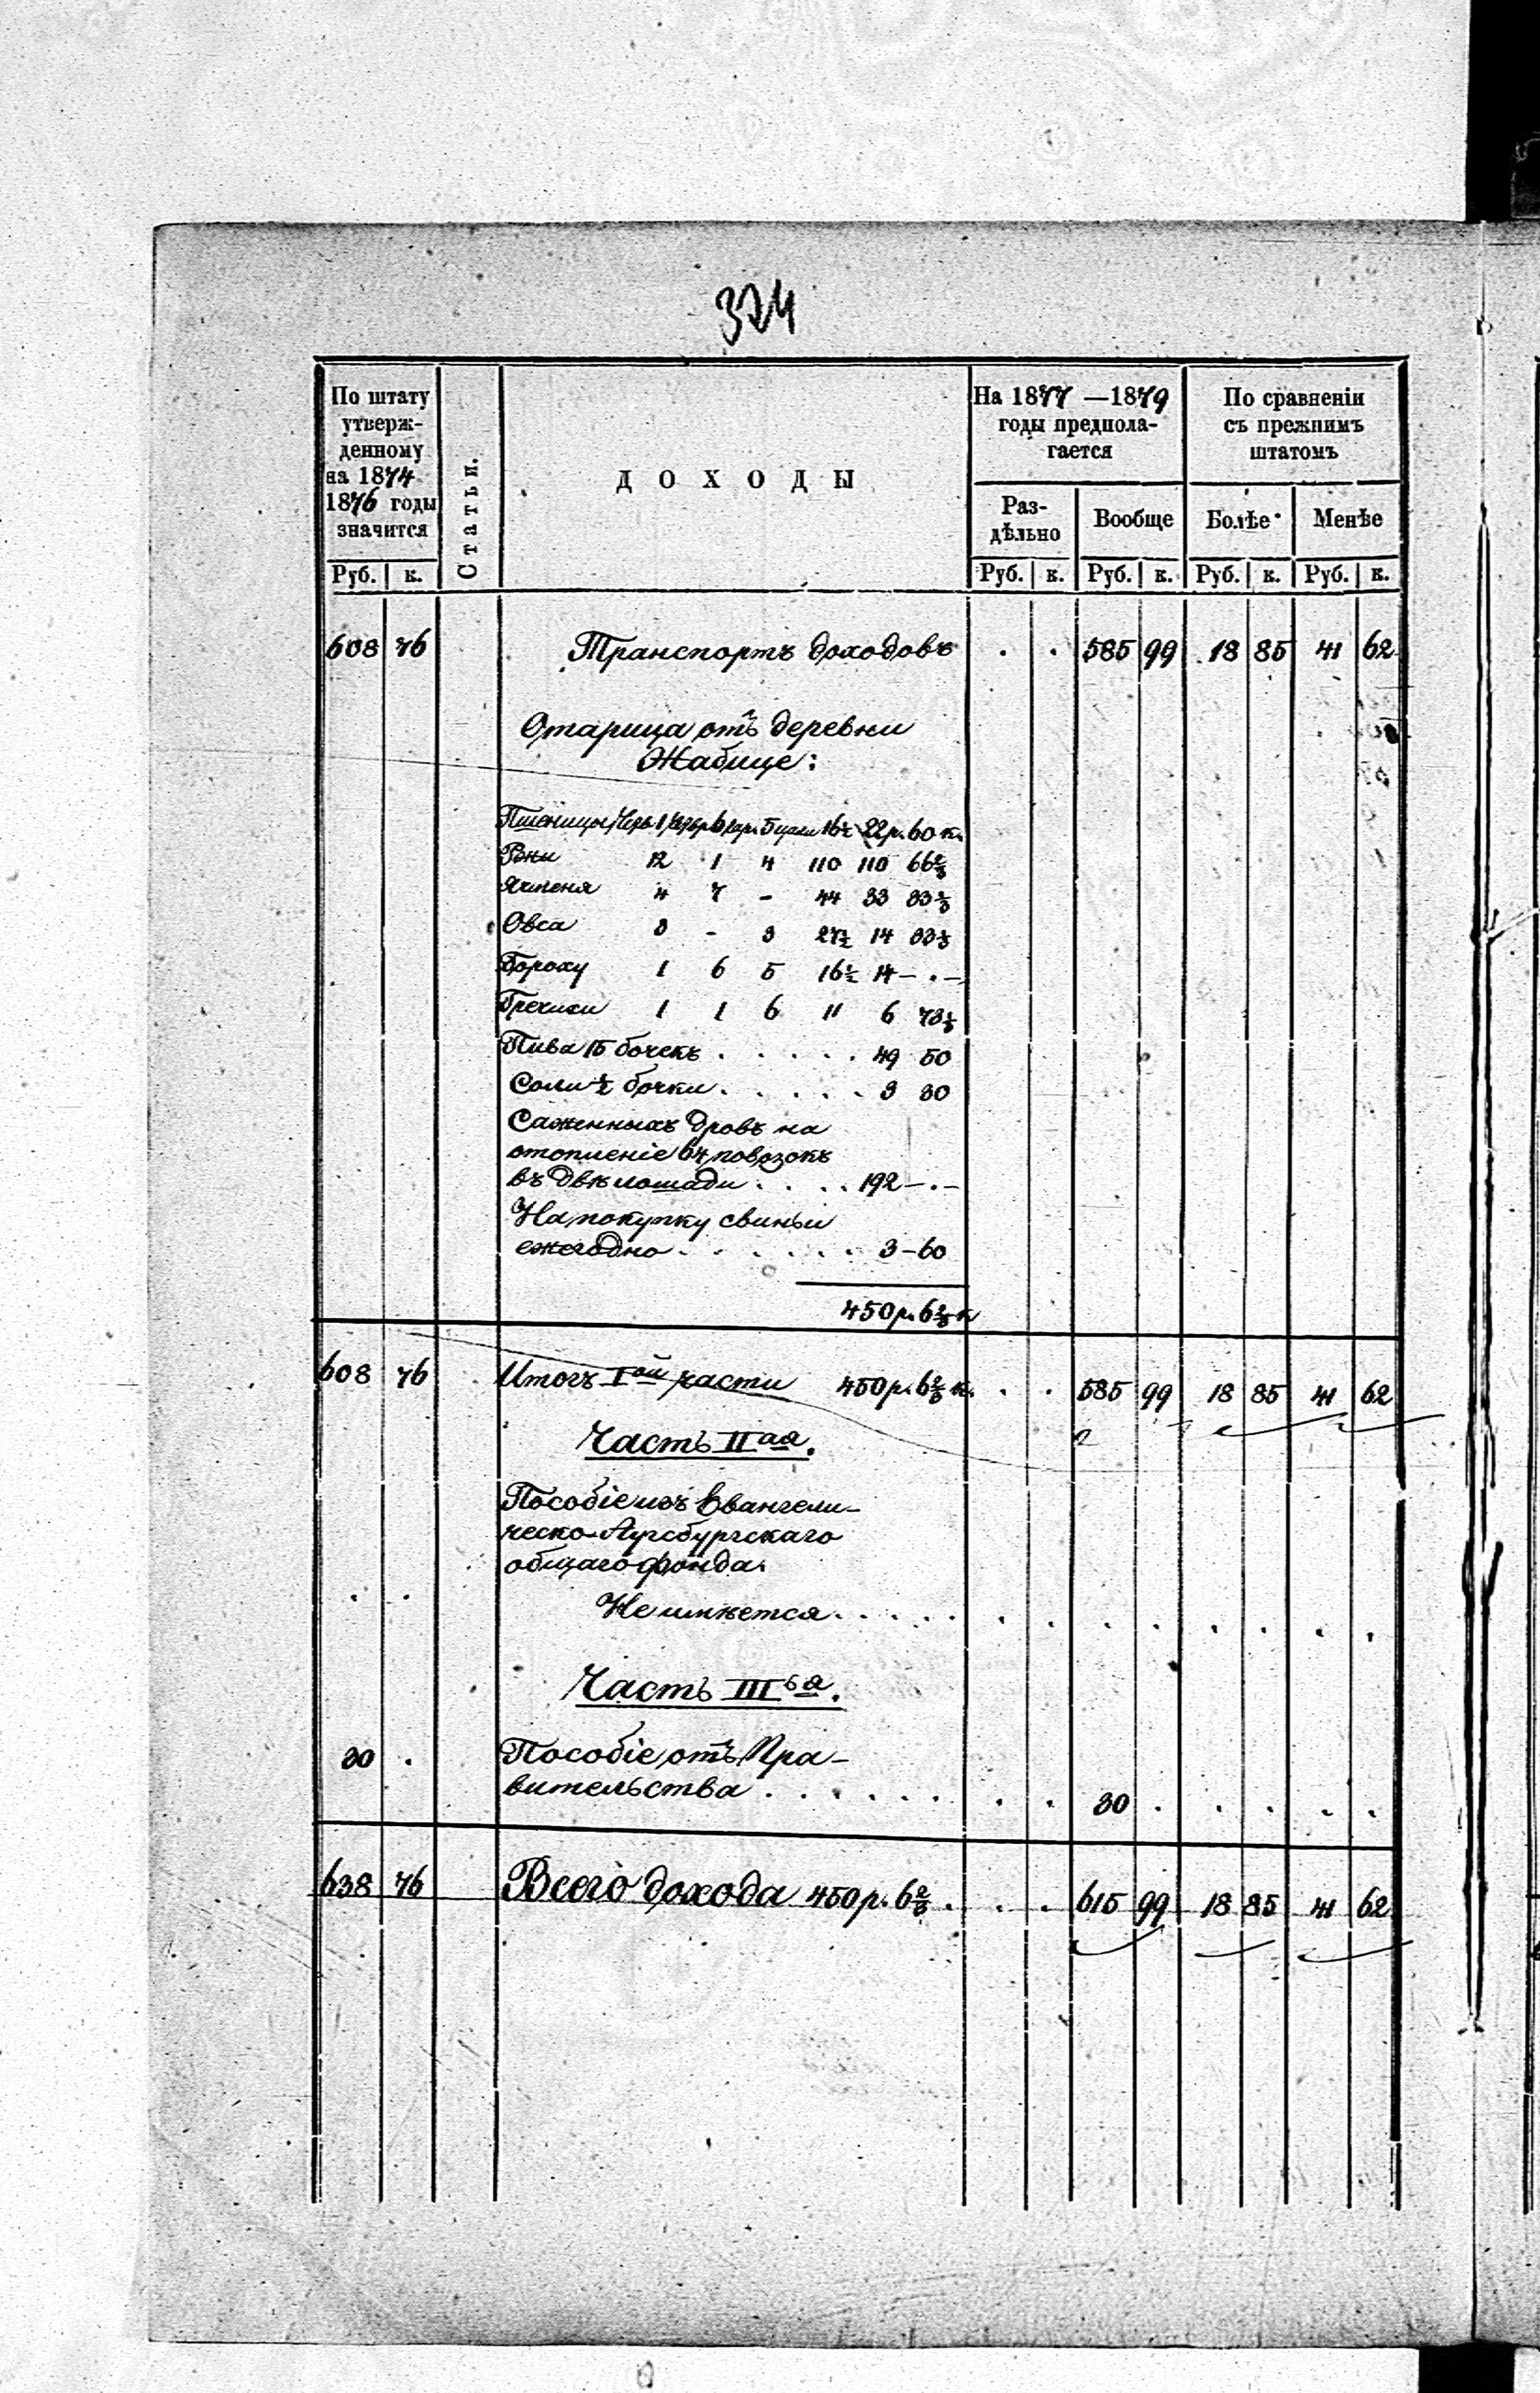 324
По штату утверж- денному на 1874 1876 годы значится
Статьи.
ДОХОДЫ
На 1877 —1879 годы предпола- гается
По сравненіи съ прежнимъ штатомъ
Раз- дѣльно
Вообще
Болѣе
Менѣе
Руб. к. Руб. к. Руб. к. Руб. к. Руб. к.
608 76 Транспортъ доходовъ . . 585 99 18 85 41 62
Отарица отъ деревни
Жабице:
Пшеницы 1 6 5 16½ 22р. 60 к.
Ржи 12 1 4 110 110 66⅔
Ячменя 4 7 - 44 33 33⅓
Овса 3 - 3 27½ 14 33⅓
Гороху 1 6 5 16½ 14 - . -
Гречихи 1 1 6 11 6 73⅓
Пива 15 бочекъ . . . . . 49 50
Соли ½ бочки . . . . . 3 30
Саженныхъ дровъ на
отопленіе 64 повозокъ
въ двѣ лошади . . . . 192 - . -
На покупку свиньи
ежегодно . . . . . . 3 - 60
450р. 6⅔ к
608 76 Итогъ Iой части 450р. 6⅔ к. . . 585 99 18 85 41 62
Часть IIая.
Пособіе изъ Евангели-
ческо-Аугсбургскаго
общаго фонда.
. . Не имѣется . . . . . . . . . . . . .
Часть IIIья.
30 . Пособіе отъ Пра-
вительства . . . . . . . . 30 . . . . .
638 76 Всего дохода 450р. 6⅔ . . . 615 99 18 85 41 62